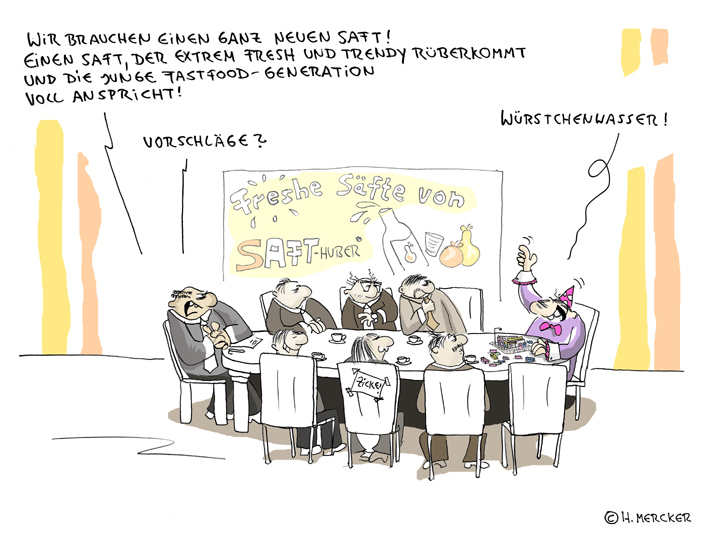 WIR BRAUCHEN EINEN GANZ NEUEN SAFT!
EINEN SAFT, DER EXTREM FRESH UND TRENDY RÜBERKOMMT
UND DIE JUNGE FASTFOOD-GENERATION
VOLL ANSPRICHT!
VORSCHLÄGE?
WÜRSTCHENWASSER!
Freshe Säfte von
SAFT-HUBER
ZICKE
© H. MERCKER